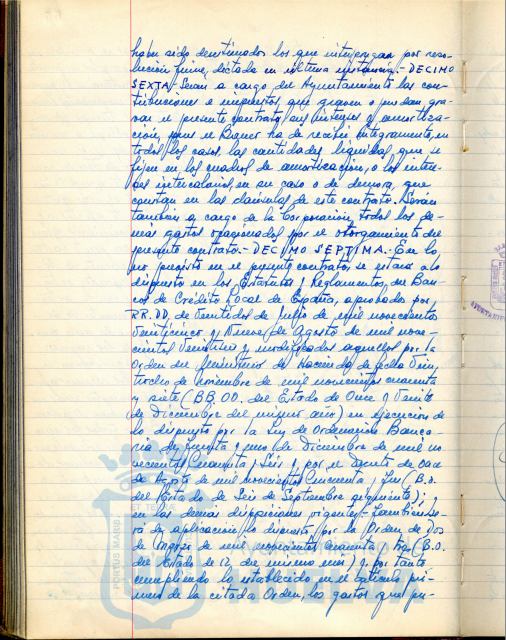 haber sido desestimados los que interpongan por reso-
lución firme, dictada en última instancia.- DECIMO
SEXTA.- Serán a cargo del Ayuntamiento las con-
tribuciones e impuestos que graven o puedan gra-
var el presente contrato, sus intereses y amortiza-
ción, pues el Banco ha de recibir íntegramente, en
todos los casos, las cantidades líquidas que se
fijen en los cuadros de amortización, o los inter-
eses intercalarios, en su caso o de demora, que
constan en las cláusulas de este contrato. Serán
también a cargo de la Corporación, todos los de-
más gastos ocasionados por el otorgamiento del
presente contrato.- DECIMO SEPTIMA.- En lo
no previsto en el presente contrato, se estará a lo
dispuesto en los Estatutos y Reglamentos del Ban-
co de Crédito Local de España, aprobado por
RR.DD. de veintidos de Julio de mil novecientos
veinticinco y Nueve de Agosto de mil nove-
cientos veintiseis y modificados aquellos por la
Orden del Ministerio de Hacienda de fecha vein-
tiocho de noviembre de mil novecientos cuarenta
y siete (BB.OO. del Estado de Once y Veinte
de Diciembre del mismo año) en ejecución de
lo dispuesto por la Ley de Ordenación Banca-
ria de treinta y uno de Diciembre de mil no-
vecientos Cuarenta y Seis y por el decreto de Once
de Agosto de mil novecientos Cincuenta y Tres (B.O.
del Estado de Seis de Septiembre siguiente); y
en las demás disposiciones vigentes. También se-
rá de aplicación lo dispuesto por la Orden de Dos
de Marzo de mil novecientos cuarenta y tres (B.O.
del Estado de 12 del mismo mes) y por tanto
cumpliendo lo establecido en el artículo pri-
mero de la citada Orden, los gastos que pu-
PORTUS MARIS
ET TERRAE